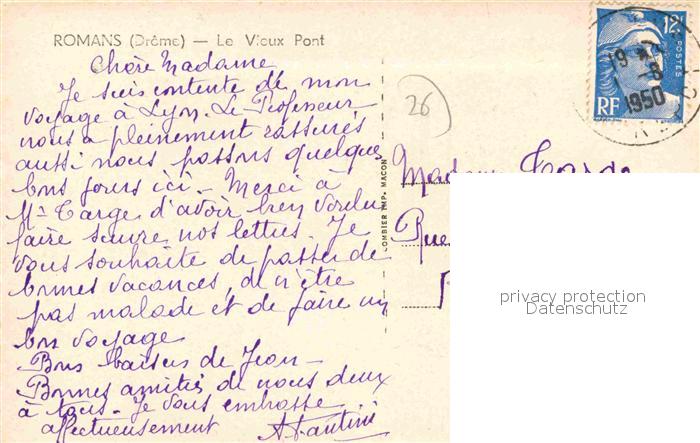 ROMANS (Drôme) — Le Vieux Pont
Chère Madame
Je suis contente de mon
voyage à Lyon. Le Professeur
nous a pleinement rassurés
aussi nous passons quelques
bons jours ici. Merci à
Mr Targe d'avoir bien voulu
faire suivre nos lettres. Je
vous souhaite de passer de
bonnes vacances, de n'être
pas malade et de faire un
bon voyage
Bons baisers de Jean —
Bonnes amitiés de nous deux
à tous. Je vous embrasse
affectueusement
COMBIER IMP. MACON
26
12F
POSTES
RF
19
8
1950
Madame Targe
Rue
privacy protection
Datenschutz